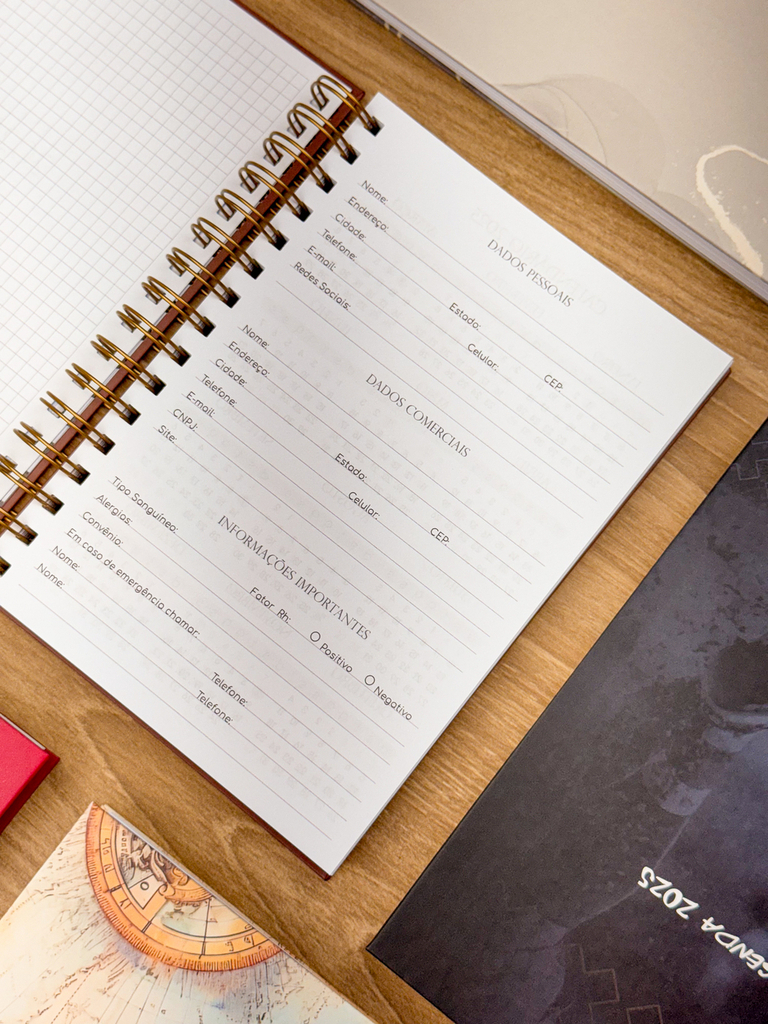 DADOS PESSOAIS
Nome:
Endereço:
Cidade: Estado: CEP:
Telefone: Celular:
E-mail:
Redes Sociais:
DADOS COMERCIAIS
Nome:
Endereço:
Cidade: Estado: CEP:
Telefone: Celular:
E-mail:
CNPJ:
Site:
INFORMAÇÕES IMPORTANTES
Tipo Sanguíneo: Fator Rh: Positivo Negativo
Alergias:
Convênio:
Em caso de emergência chamar:
Nome: Telefone:
Nome: Telefone:
GENDA 2025